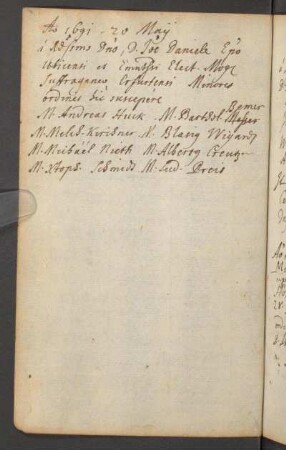 Ao 1691. 20 Maÿ
i Adsimo Dno, D. Joe Daniele Epo
Uticensi et Eminsmi Elect. Mog.
Suffraganeo Erfurtensi Minores
ordines hic suscepere
M. Andreas Huck M. Barthol. Bamer
M. Melch. Kirchner M. Blasig Wigard
M. Michael Nieth M. Alberty Creutz
M. Xtoph. Schmidt M. Lud.